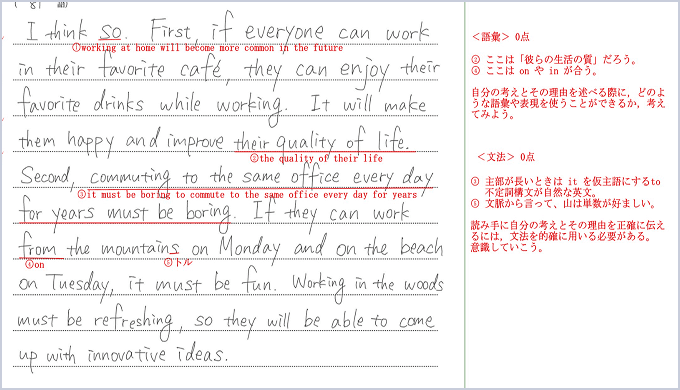 I think so. First, if everyone can work
①working at home will become more common in the future
in their favorite café, they can enjoy their
favorite drinks while working. It will make
them happy and improve their quality of life.
②the quality of their life
Second, commuting to the same office every day
③it must be boring to commute to the same office every day for years
for years must be boring. If they can work
from the mountains on Monday and on the beach
④on
⑤トル
on Tuesday, it must be fun. Working in the woods
must be refreshing, so they will be able to come
up with innovative ideas.
＜語彙＞ 0点
② ここは「彼らの生活の質」だろう。
④ ここは on や in が合う。
自分の考えとその理由を述べる際に, どのよ
うな語彙や表現を使うことができるか, 考え
てみよう。
＜文法＞ 0点
③ 主部が長いときは it を仮主語にするto
不定詞構文が自然な英文。
⑤ 文脈から言って、山は単数が好ましい。
読み手に自分の考えとその理由を正確に伝え
るには, 文法を的確に用いる必要がある。
意識していこう。